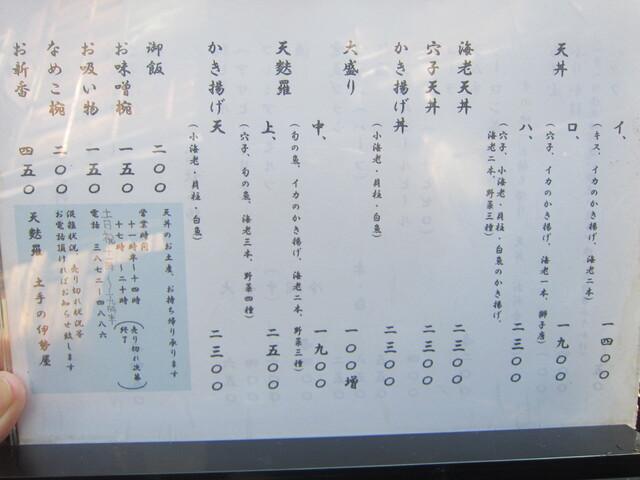 天丼
イ、(キス、イカのかき揚げ、海老二本) 一四〇〇
ロ、(穴子、イカのかき揚げ、海老一本、獅子唐) 一九〇〇
ハ、(穴子、小海老・貝柱・白魚のかき揚げ、海老二本、野菜三種) 二三〇〇
海老天丼 二三〇〇
穴子天丼 二三〇〇
かき揚げ丼 (小海老・貝柱・白魚) 二三〇〇
大盛り 一〇〇増
天麩羅
中、(旬の魚、イカのかき揚げ、海老二本、野菜三種) 一九〇〇
上、(穴子、旬の魚、海老三本、野菜四種) 二五〇〇
かき揚げ天 (小海老・貝柱・白魚) 二三〇〇
御飯 二〇〇
お味噌椀 一五〇
お吸い物 一五〇
なめこ椀 二〇〇
お新香 四五〇
天丼のお土産り お持ち帰り承ります
営業時間
十一時半~十四時
十七時~二十時 (売り切れ次第終了)
土日祝
電話 三八七二-四八八六
混雑状況、売り切れ状況等
お電話頂ければお知らせ致します
天麩羅 土手の伊勢屋